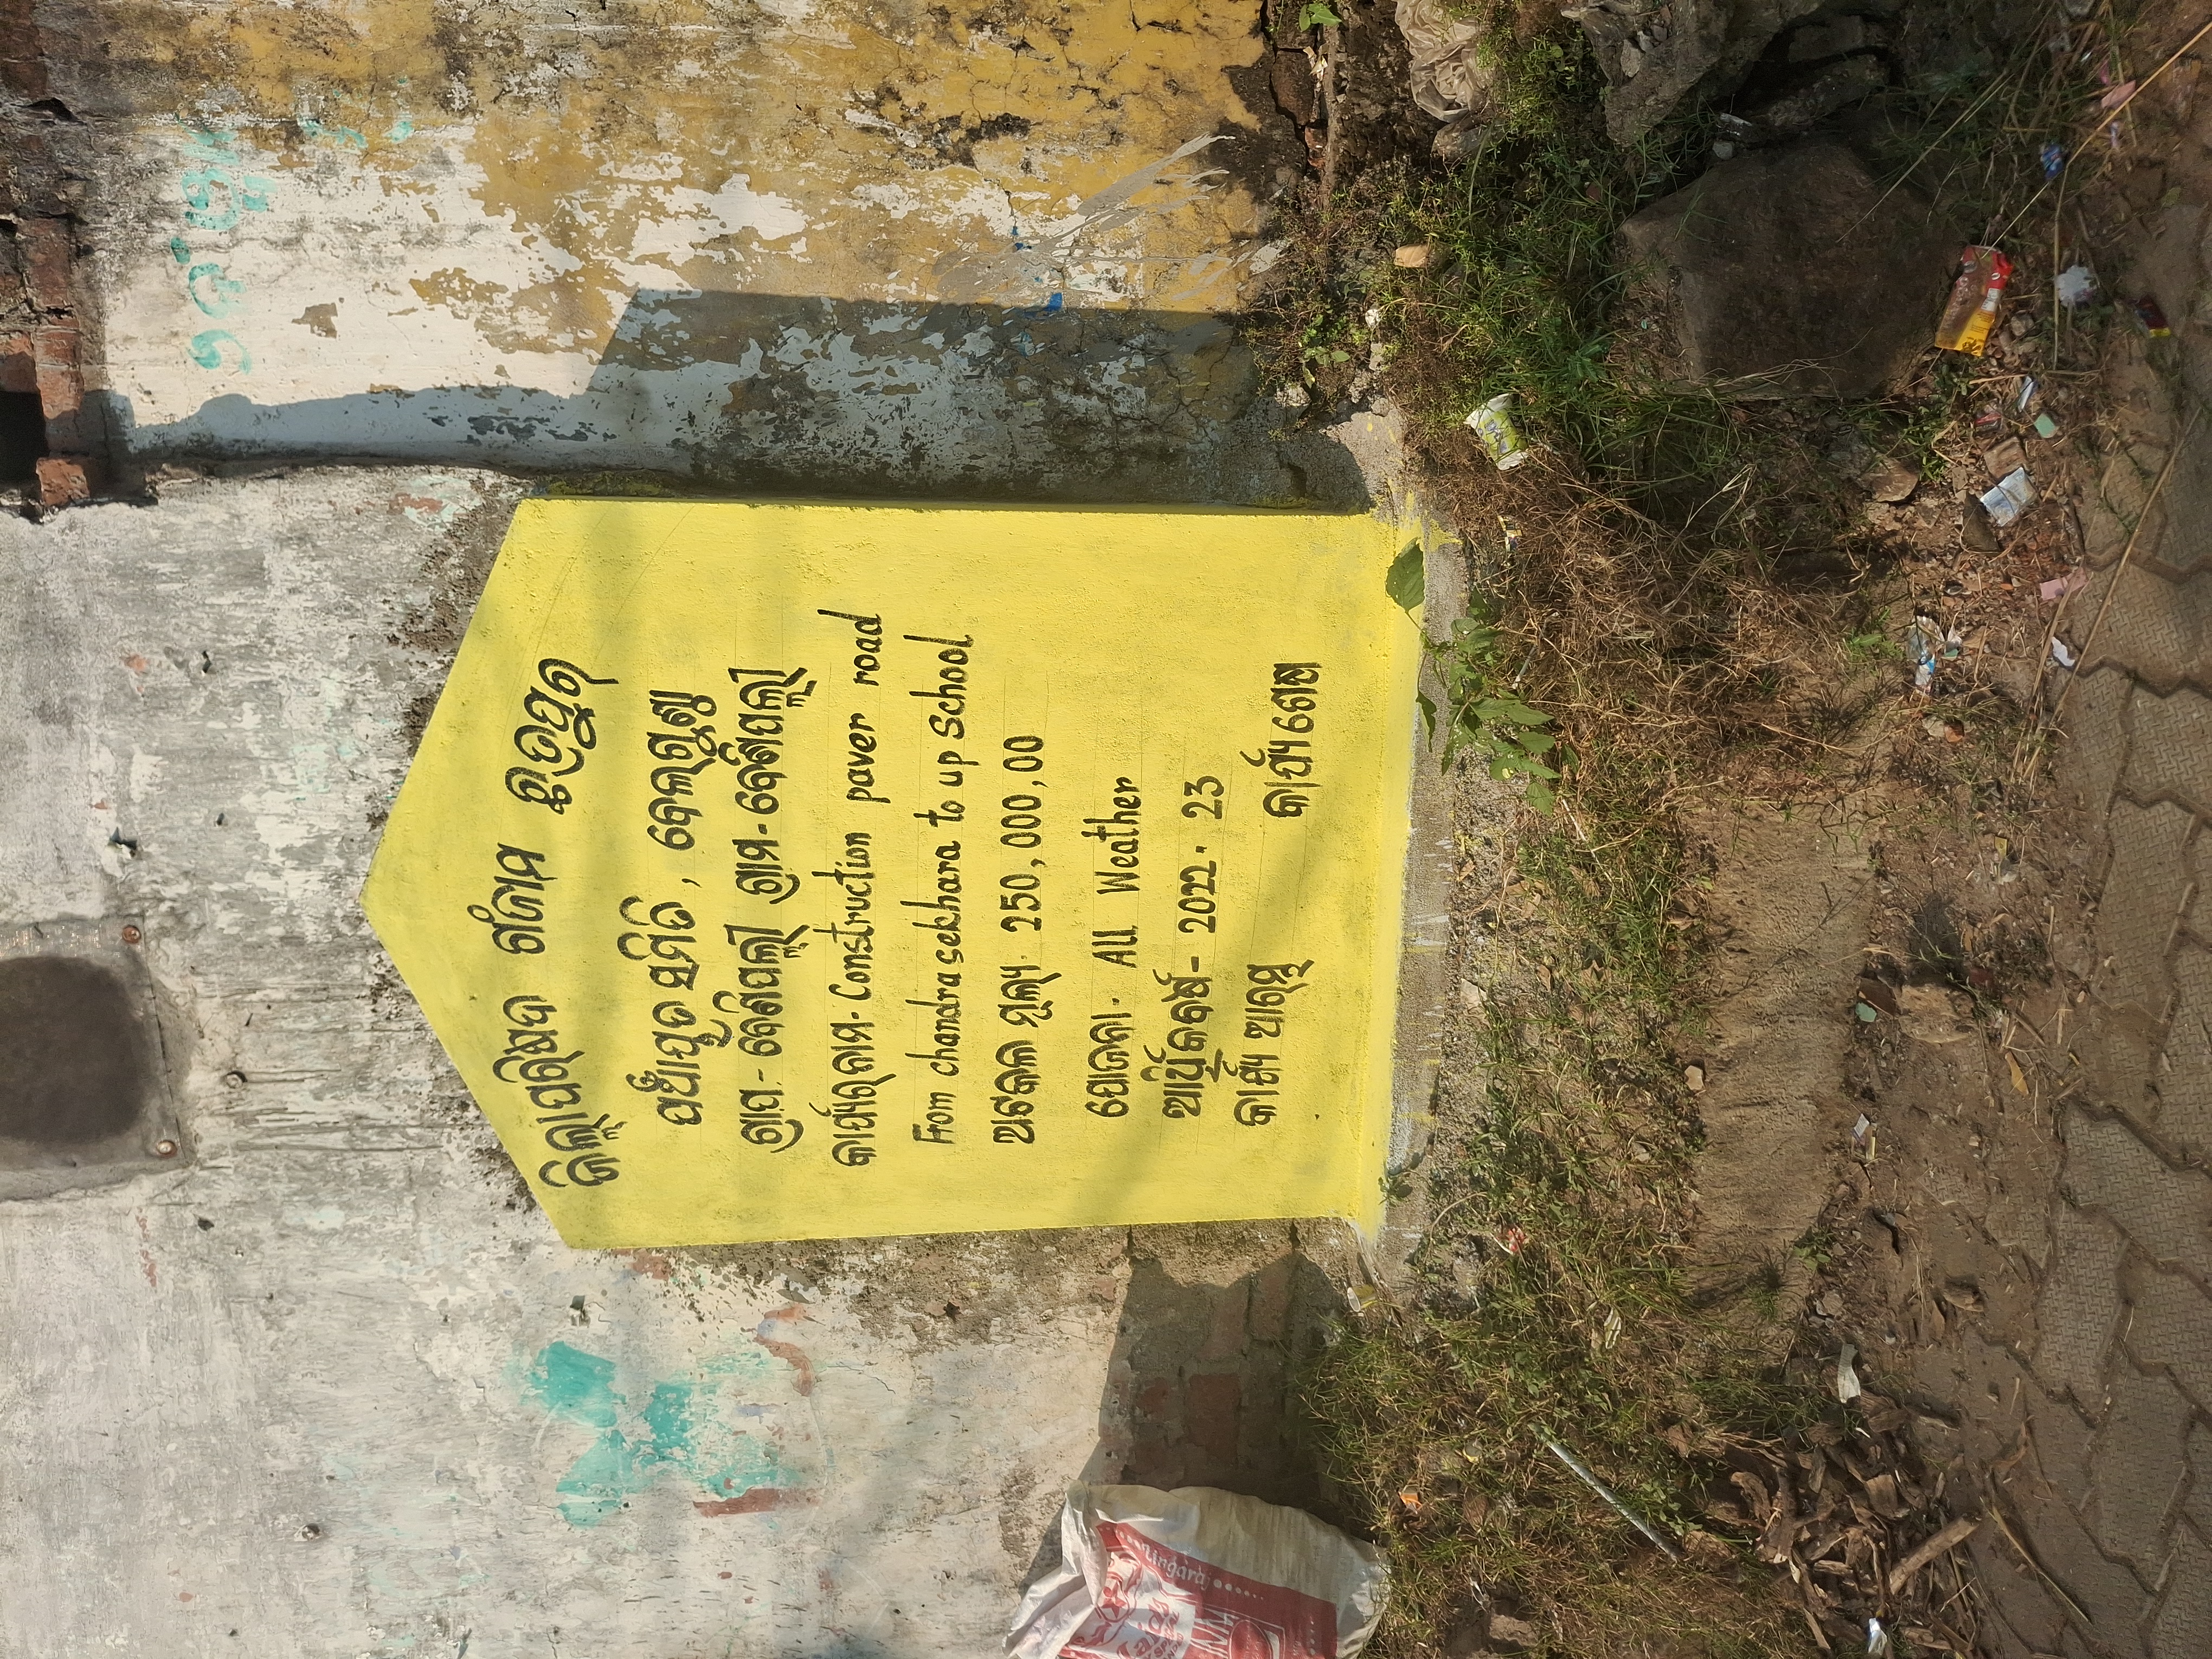 ଜିଲ୍ଲାପରିଷଦ ଗଂଜାମ ଛତ୍ରପୁର
ପଞ୍ଚାୟତ ସମିତି , ବେଲଗୁଣ୍ଠା
ଗ୍ରାପ - ବେଣିପଲ୍ଲୀ ଗ୍ରାମ - ବେଣିପଲ୍ଲୀ
କାର୍ଯ୍ୟରନାମ - Construction paver road
From chandrasekhara to up School
ଅଟକଳ ମୂଲ୍ୟ - 250,000,00
ଯୋଜନା - All Weather
ଆର୍ଥିକବର୍ଷ - 2022 - 23
କାର୍ଯ୍ୟ ଆରମ୍ଭ କାର୍ଯ୍ୟ ଶେଷ
Lingaraj